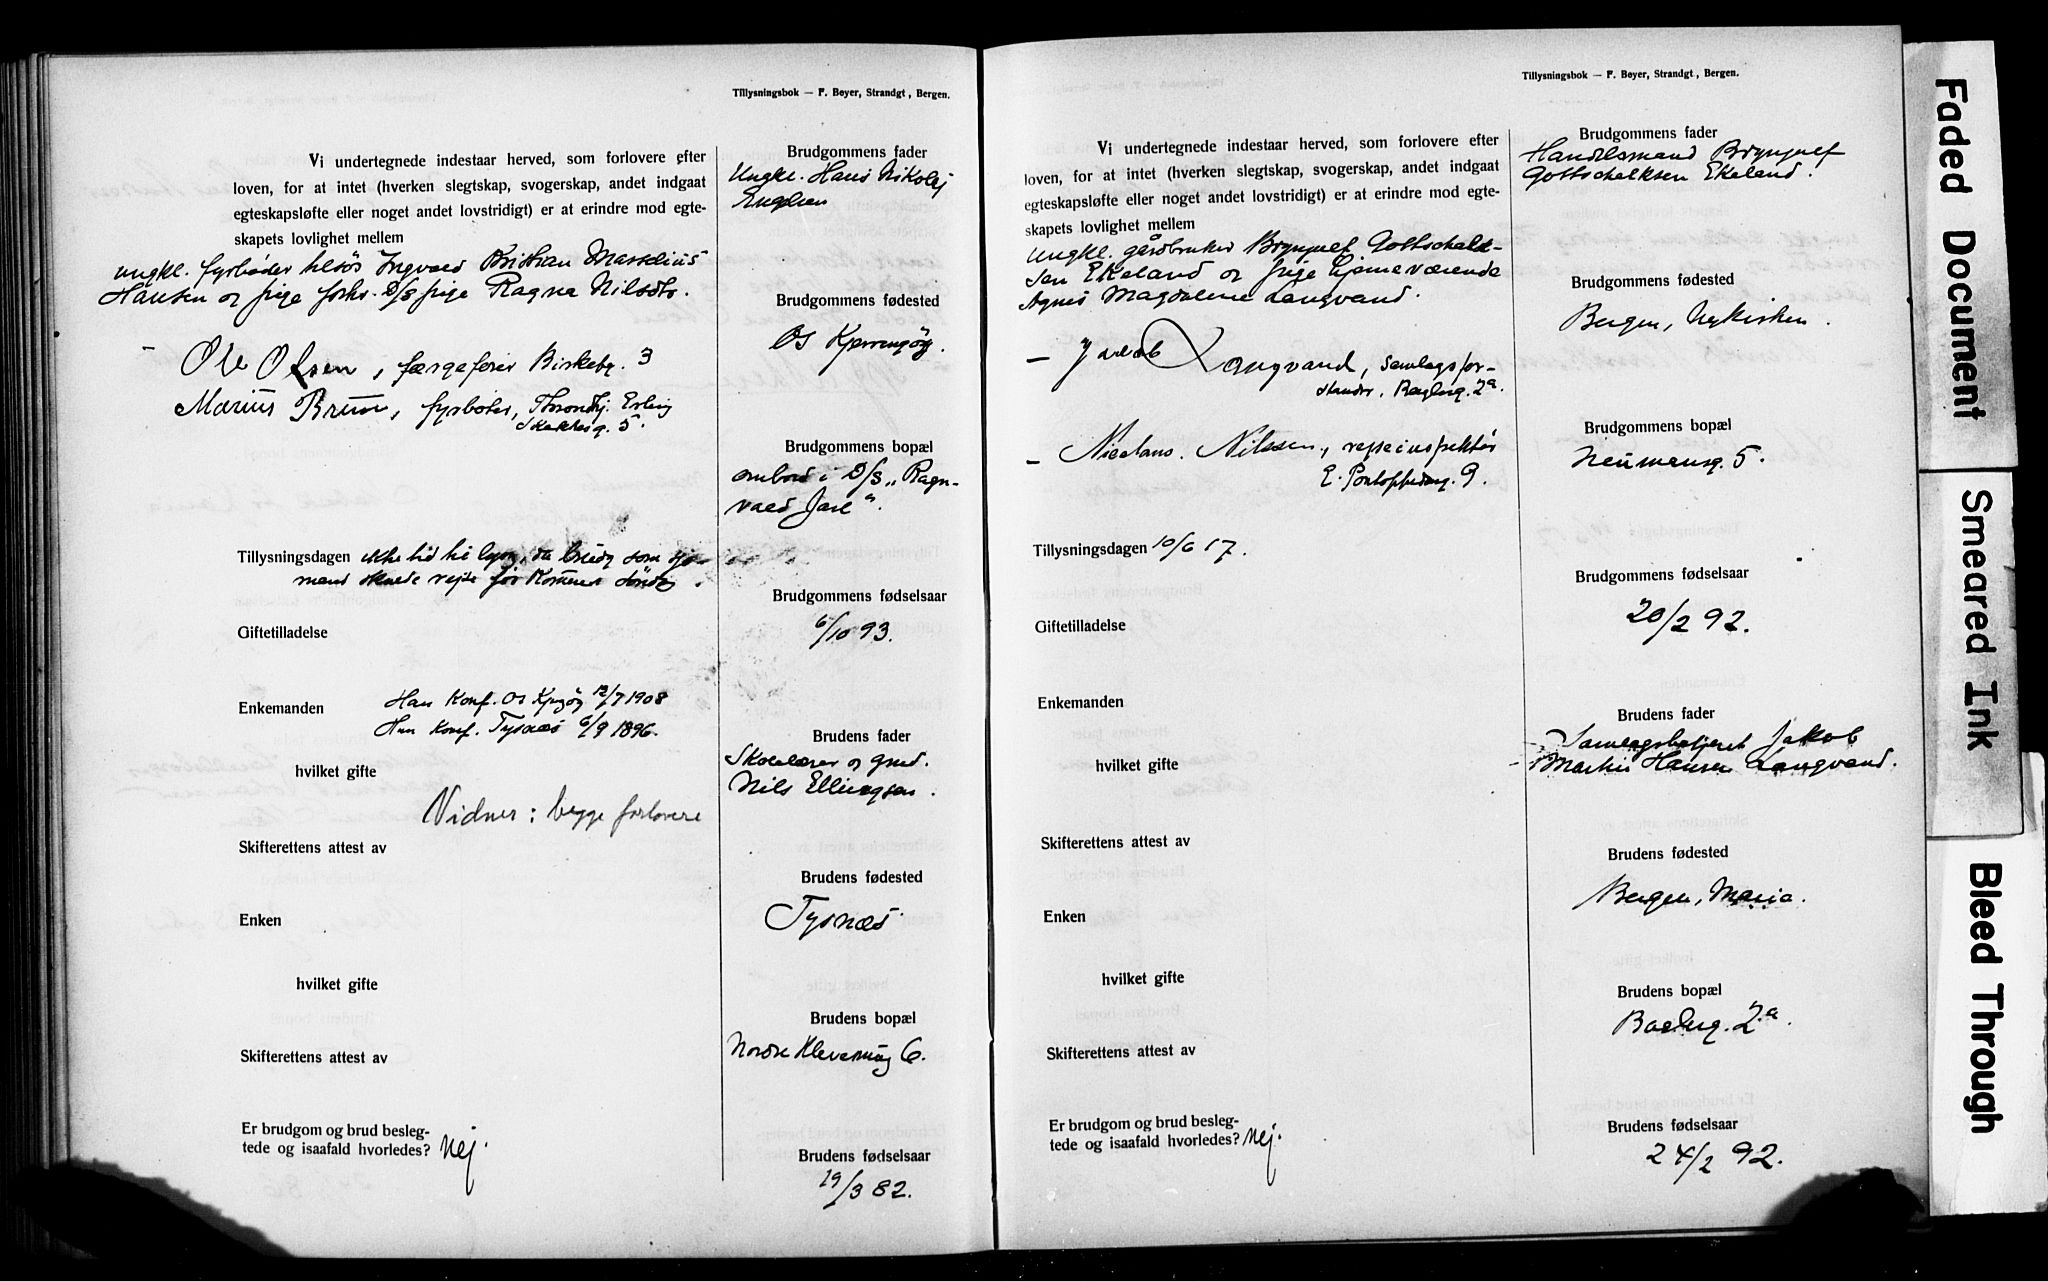 Tillysningsbok — F. Bøyer, Strandgt, Bergen.
Vi undertegnede indestaar herved, som forlovere efter
loven, for at intet (hverken slegtskap, svogerskap, andet indgaat
egteskapsløfte eller noget andet lovstridigt) er at erindre mod egte-
skapets lovlighet mellem
ungkl. fyrbøder tilsøs Ingvald Kristian Masselius
Hansen og pige forhv. D/S pige Ragna Nilsdtr.
Ole Olsen, færgefører Birkebg. 3
Marius Brun, fyrbøter, Throndhj. Erling
Skakkesg. 5.
Tillysningsdagen ikke tid til lysn., da brudg som sjø-
mand skulde reise før kommende søndag.
Giftetilladelse
Enkemanden
Han konf. Os Kjerringøy 12/7 1908
Hun konf. Tysnæs 6/9 1896.
hvilket gifte
Vidner: begge forlovere
Skifterettens attest av
Enken
hvilket gifte
Skifterettens attest av
Er brudgom og brud besleg-
tede og isaafald hvorledes? Nej.
Brudgommens fader
Ungkl. Hans Nikolaj
Engelsen
Brudgommens fødested
Os Kjerringøy.
Brudgommens bopæl
ombord i D/S „Ragn-
vald Jarl“.
Brudgommens fødselsaar
6/10 93.
Brudens fader
Skolelærer og grbd.
Nils Ellingsen.
Brudens fødested
Tysnæs
Brudens bopæl
Nordre Klevesmug 6.
Brudens fødselsaar
19/3 82.
Tillysningsbok — F. Bøyer, Strandgt, Bergen.
Vi undertegnede indestaar herved, som forlovere efter
loven, for at intet (hverken slegtskap, svogerskap, andet indgaat
egteskapsløfte eller noget andet lovstridigt) er at erindre mod egte-
skapets lovlighet mellem
ungkl. gårdbruker Brynjulf Gottschalk-
sen Ekeland og pige hjemmeværende
Agnes Magdalene Langvand.
— Jakob Langvand, samlagsfor-
stander, Baglerg. 2a.
— Nicolaus Nilssen, reiseinspektør
E. Pontoppidansg. 9.
Tillysningsdagen 10/6 17.
Giftetilladelse
Enkemanden
hvilket gifte
Skifterettens attest av
Enken
hvilket gifte
Skifterettens attest av
Er brudgom og brud besleg-
tede og isaafald hvorledes? Nej.
Brudgommens fader
Handelsmand Brynjulf
Gottschalksen Ekeland.
Brudgommens fødested
Bergen, Nykirken.
Brudgommens bopæl
Neumansg. 5.
Brudgommens fødselsaar
20/2 92.
Brudens fader
Samlagsbestyrer Jakob
Martin Hansen Langvand.
Brudens fødested
Bergen, Maria.
Brudens bopæl
Baglerg. 2a.
Brudens fødselsaar
24/2 92.
Faded Document
Smeared Ink
Bleed Through